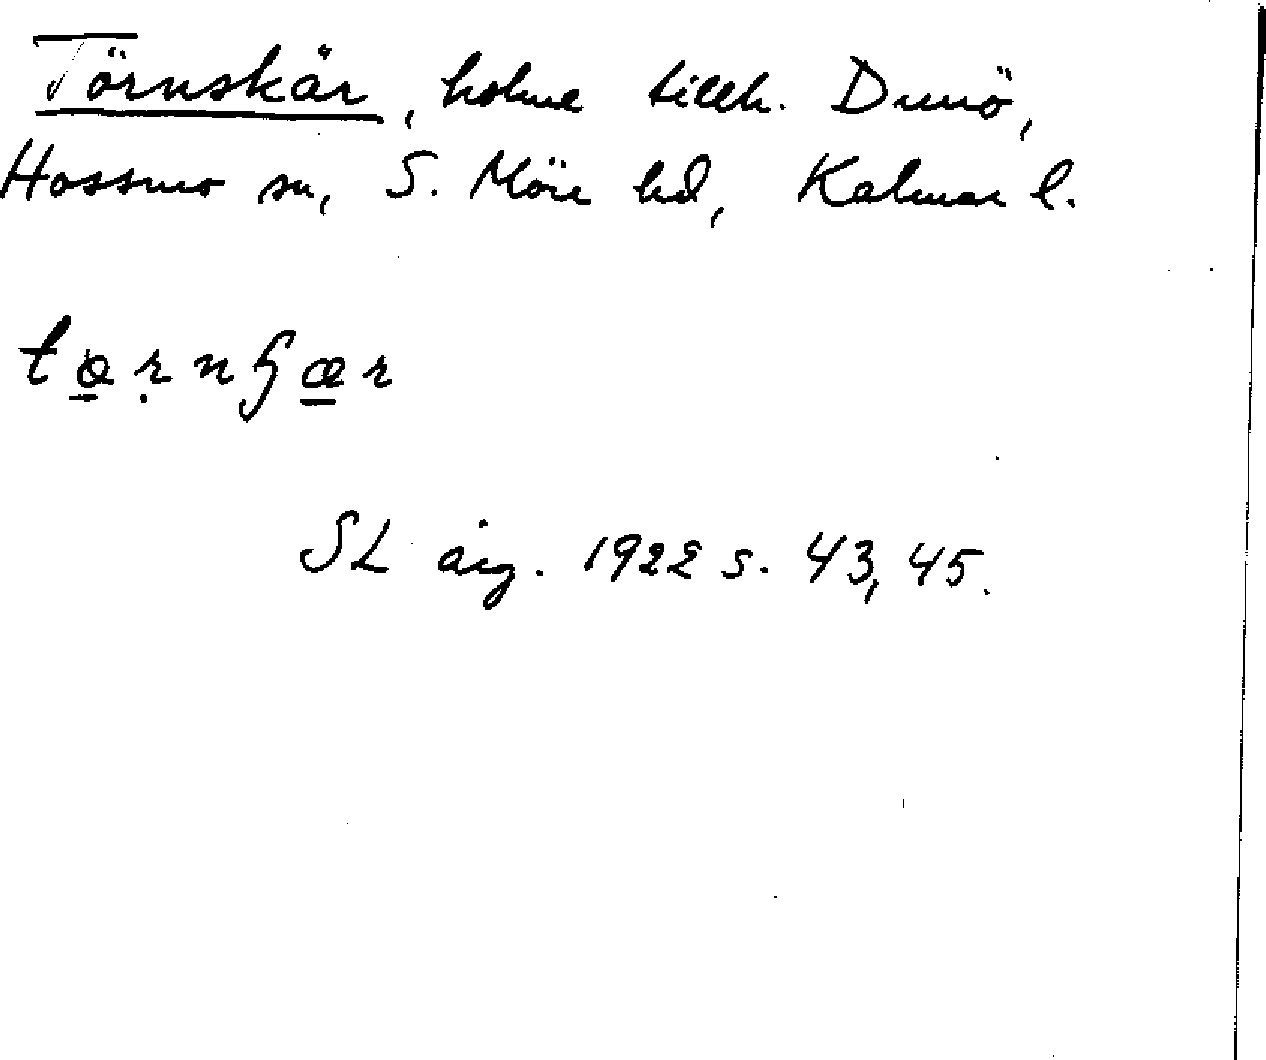 Törnskär, holme tillh. Dunö,
Hossmo sn, S. Möre hd, Kalmar l.
SL årg. 1922 s. 43, 45.